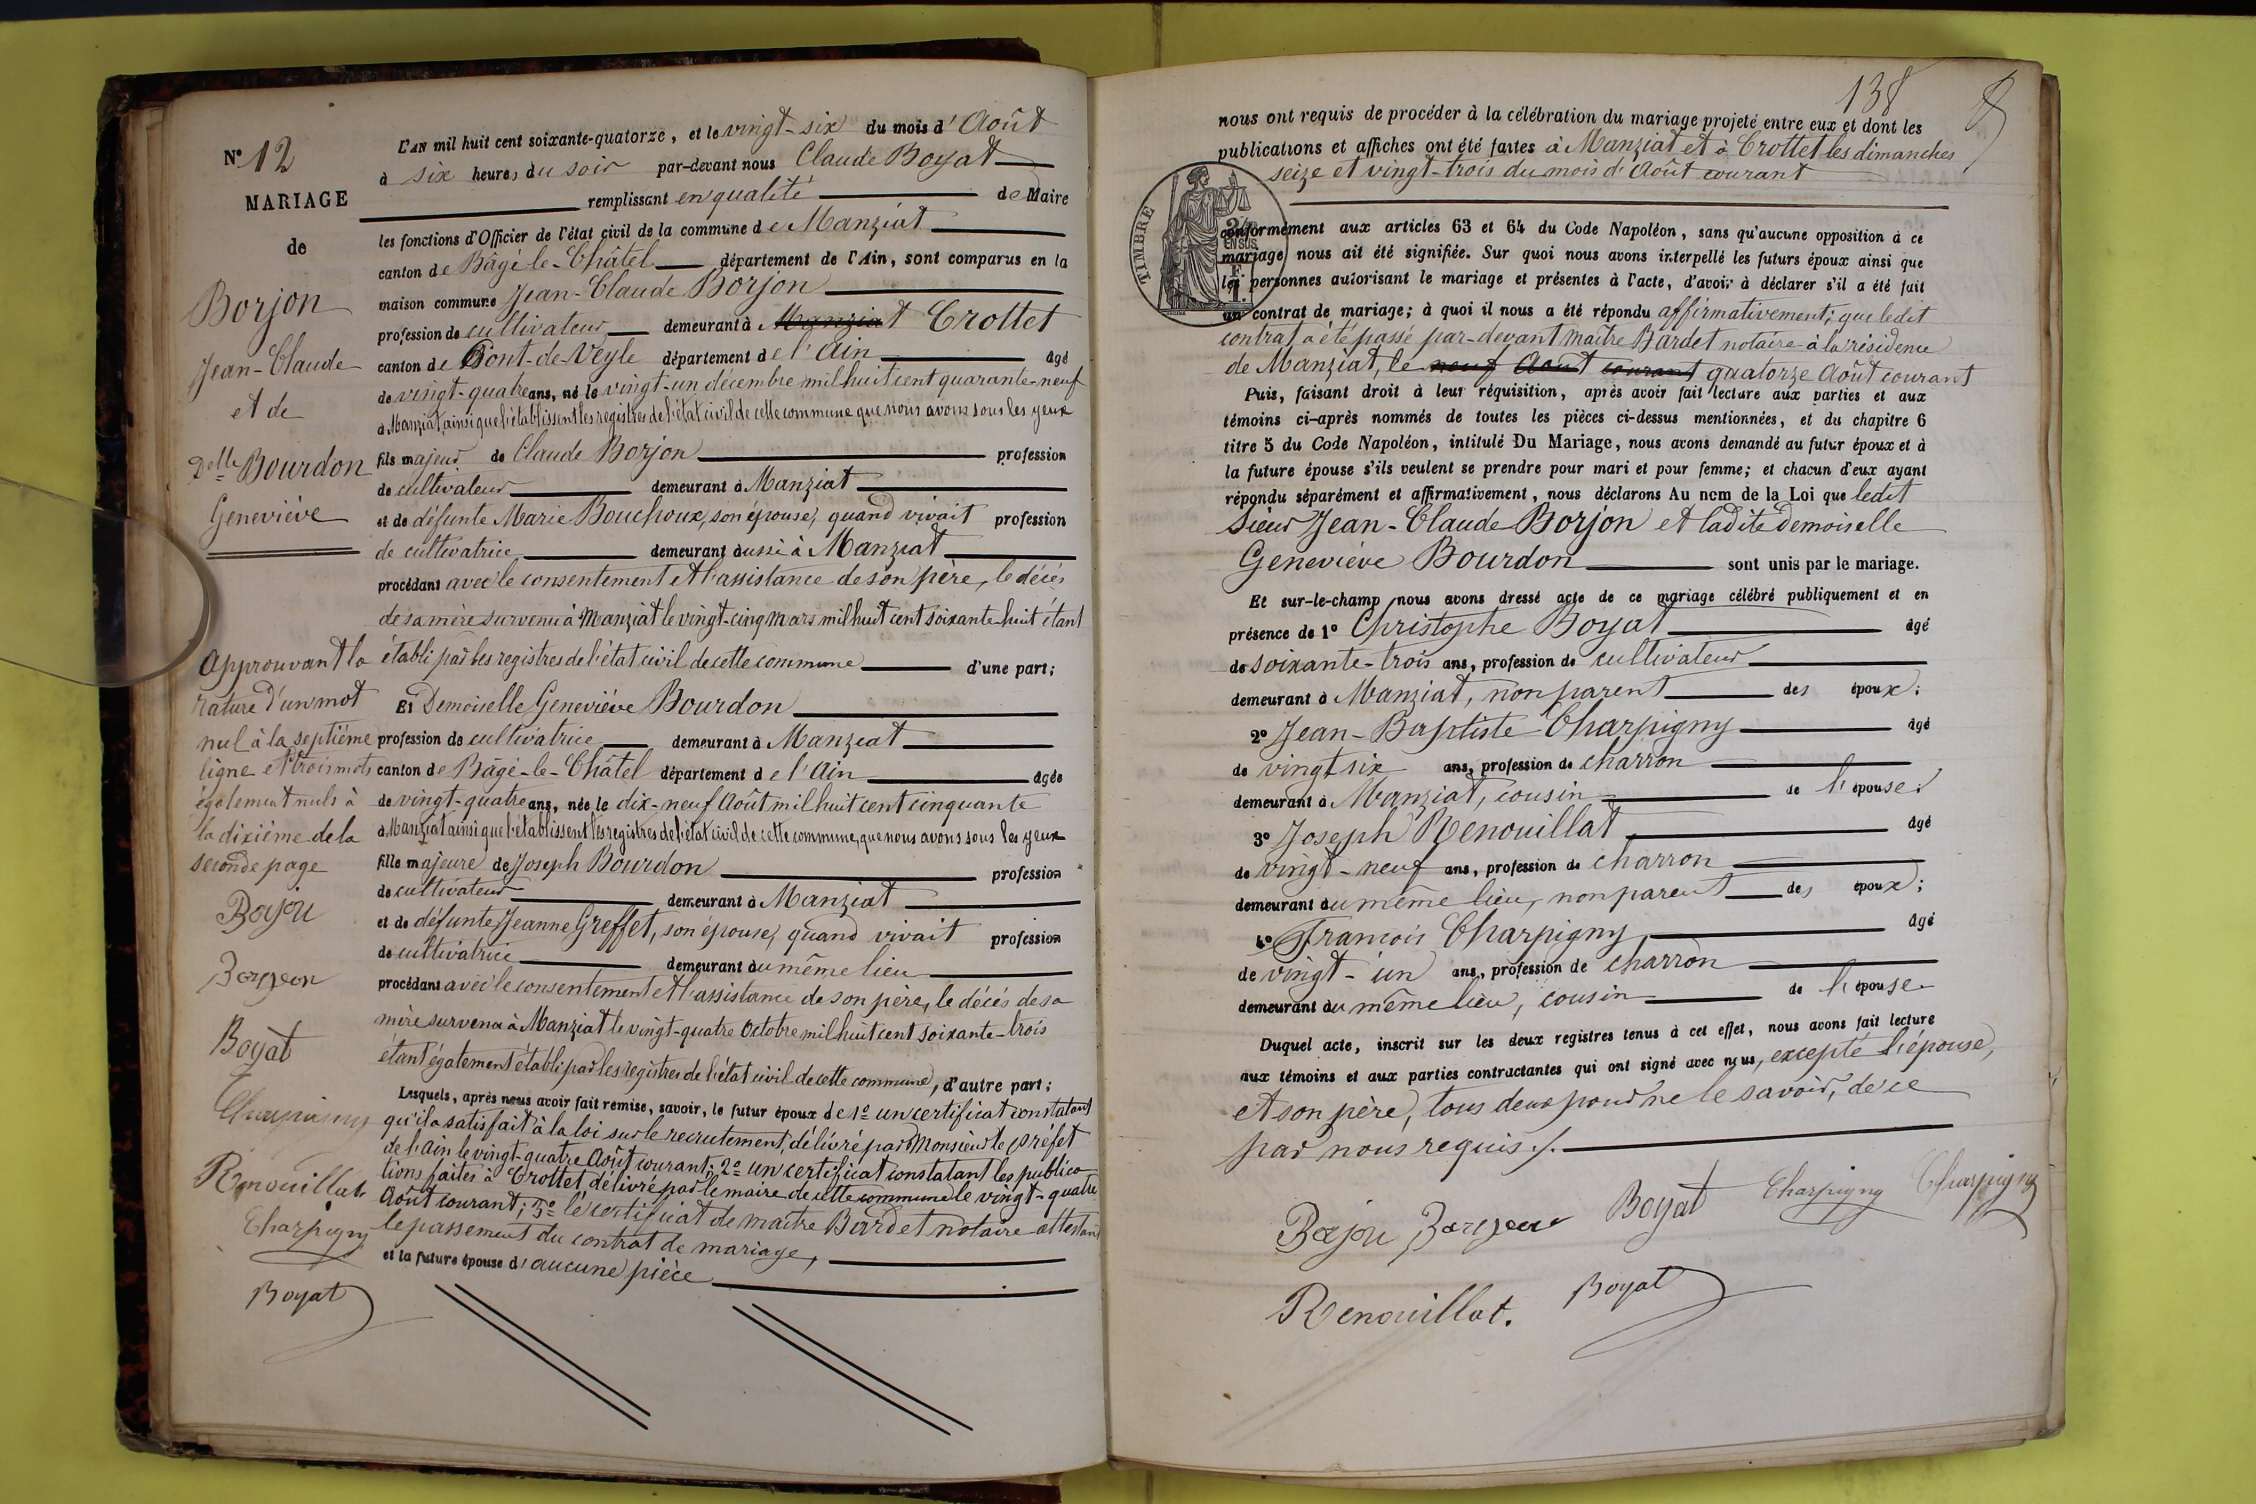 N° 12
MARIAGE
de
Borjon
Jean-Claude
et de
Delle Bourdon
Geneviève
Approuvant la
rature d'un mot
nul à la septième
ligne et trois mots
également nuls à
la dixième de la
seconde page
Borjon
Borjon
Boyat
Charpigny
Renouillat
Charpigny
Boyat
L'AN mil huit cent soixante-quatorze, et le vingt-six du mois d'Août
à six heures du soir par-devant nous Claude Boyat
remplissant en qualité de Maire
les fonctions d'Officier de l'état civil de la commune de Manziat
canton de Bâgé-le-Châtel département de l'Ain, sont comparus en la
maison commune Jean-Claude Borjon
profession de cultivateur demeurant à Manziat Crottet
canton de Pont-de-Veyle département de l'Ain âgé
de vingt-quatre ans, né le vingt-un décembre mil huit cent quarante-neuf
à Manziat ainsi que l'établissent les registres de l'état civil de cette commune que nous avons sous les yeux
fils majeur de Claude Borjon profession
de cultivateur demeurant à Manziat
et de défunte Marie Bouchoux, son épouse, quand vivait profession
de cultivatrice demeurant aussi à Manziat
procédant avec le consentement et l'assistance de son père, le décès
de sa mère survenu à Manziat le vingt-cinq Mars mil huit cent soixante-huit étant
établi par les registres de l'état civil de cette commune d'une part;
Et Demoiselle Geneviève Bourdon
profession de cultivatrice demeurant à Manziat
canton de Bâgé-le-Châtel département de l'Ain âgée
de vingt-quatre ans, née le dix-neuf Août mil huit cent cinquante
à Manziat ainsi que l'établissent les registres de l'état civil de cette commune, que nous avons sous les yeux
fille majeure de Joseph Bourdon profession
de cultivateur demeurant à Manziat
et de défunte Jeanne Greffet, son épouse, quand vivait profession
de cultivatrice demeurant au même lieu
procédant avec le consentement et l'assistance de son père, le décès de sa
mère survenu à Manziat le vingt-quatre Octobre mil huit cent soixante-trois
étant également établi par les registres de l'état civil de cette commune, d'autre part;
Lesquels, après nous avoir fait remise, savoir, le futur époux de 1° un certificat constatant
qu'il a satisfait à la loi sur le recrutement, délivré par Monsieur le préfet
de l'Ain le vingt-quatre Août courant; 2° un certificat constatant les publica-
tions faites à Crottet délivré par le maire de cette commune le vingt-quatre
Août courant; 3° le certificat de maître Bardet notaire attestant
le passement du contrat de mariage,
et la future épouse d'aucune pièce
138
nous ont requis de procéder à la célébration du mariage projeté entre eux et dont les
publications et affiches ont été faites à Manziat et à Crottet les dimanches
seize et vingt-trois du mois d'Août courant
TIMBRE
2/10 EN SUS
conformément aux articles 63 et 64 du Code Napoléon, sans qu'aucune opposition à ce
mariage nous ait été signifiée. Sur quoi nous avons interpellé les futurs époux ainsi que
les personnes autorisant le mariage et présentes à l'acte, d'avoir à déclarer s'il a été fait
un contrat de mariage; à quoi il nous a été répondu affirmativement; que ledit
contrat a été passé par-devant maître Bardet notaire à la résidence
de Manziat, le neuf Août courant quatorze Août courant
Puis, faisant droit à leur réquisition, après avoir fait lecture aux parties et aux
témoins ci-après nommés de toutes les pièces ci-dessus mentionnées, et du chapitre 6
titre 5 du Code Napoléon, intitulé Du Mariage, nous avons demandé au futur époux et à
la future épouse s'ils veulent se prendre pour mari et pour femme; et chacun d'eux ayant
répondu séparément et affirmativement, nous déclarons Au nom de la Loi que ledit
Sieur Jean-Claude Borjon et ladite demoiselle
Geneviève Bourdon sont unis par le mariage.
Et sur-le-champ nous avons dressé acte de ce mariage célébré publiquement et en
présence de 1° Christophe Boyat âgé
de soixante-trois ans, profession de cultivateur
demeurant à Manziat, non parent des époux;
2° Jean-Baptiste Charpigny âgé
de vingt six ans, profession de charron
demeurant à Manziat, cousin de l'épouse;
3° Joseph Renouillat âgé
de vingt-neuf ans, profession de charron
demeurant au même lieu, non parent des époux;
4° François Charpigny âgé
de vingt-un ans, profession de charron
demeurant au même lieu, cousin de l'épouse
Duquel acte, inscrit sur les deux registres tenus à cet effet, nous avons fait lecture
aux témoins et aux parties contractantes qui ont signé avec nous, excepté l'épouse,
et son père, tous deux pour ne le savoir, de ce
par nous requis./.
Borjon Borjon Boyat Charpigny Charpigny
Renouillat. Boyat